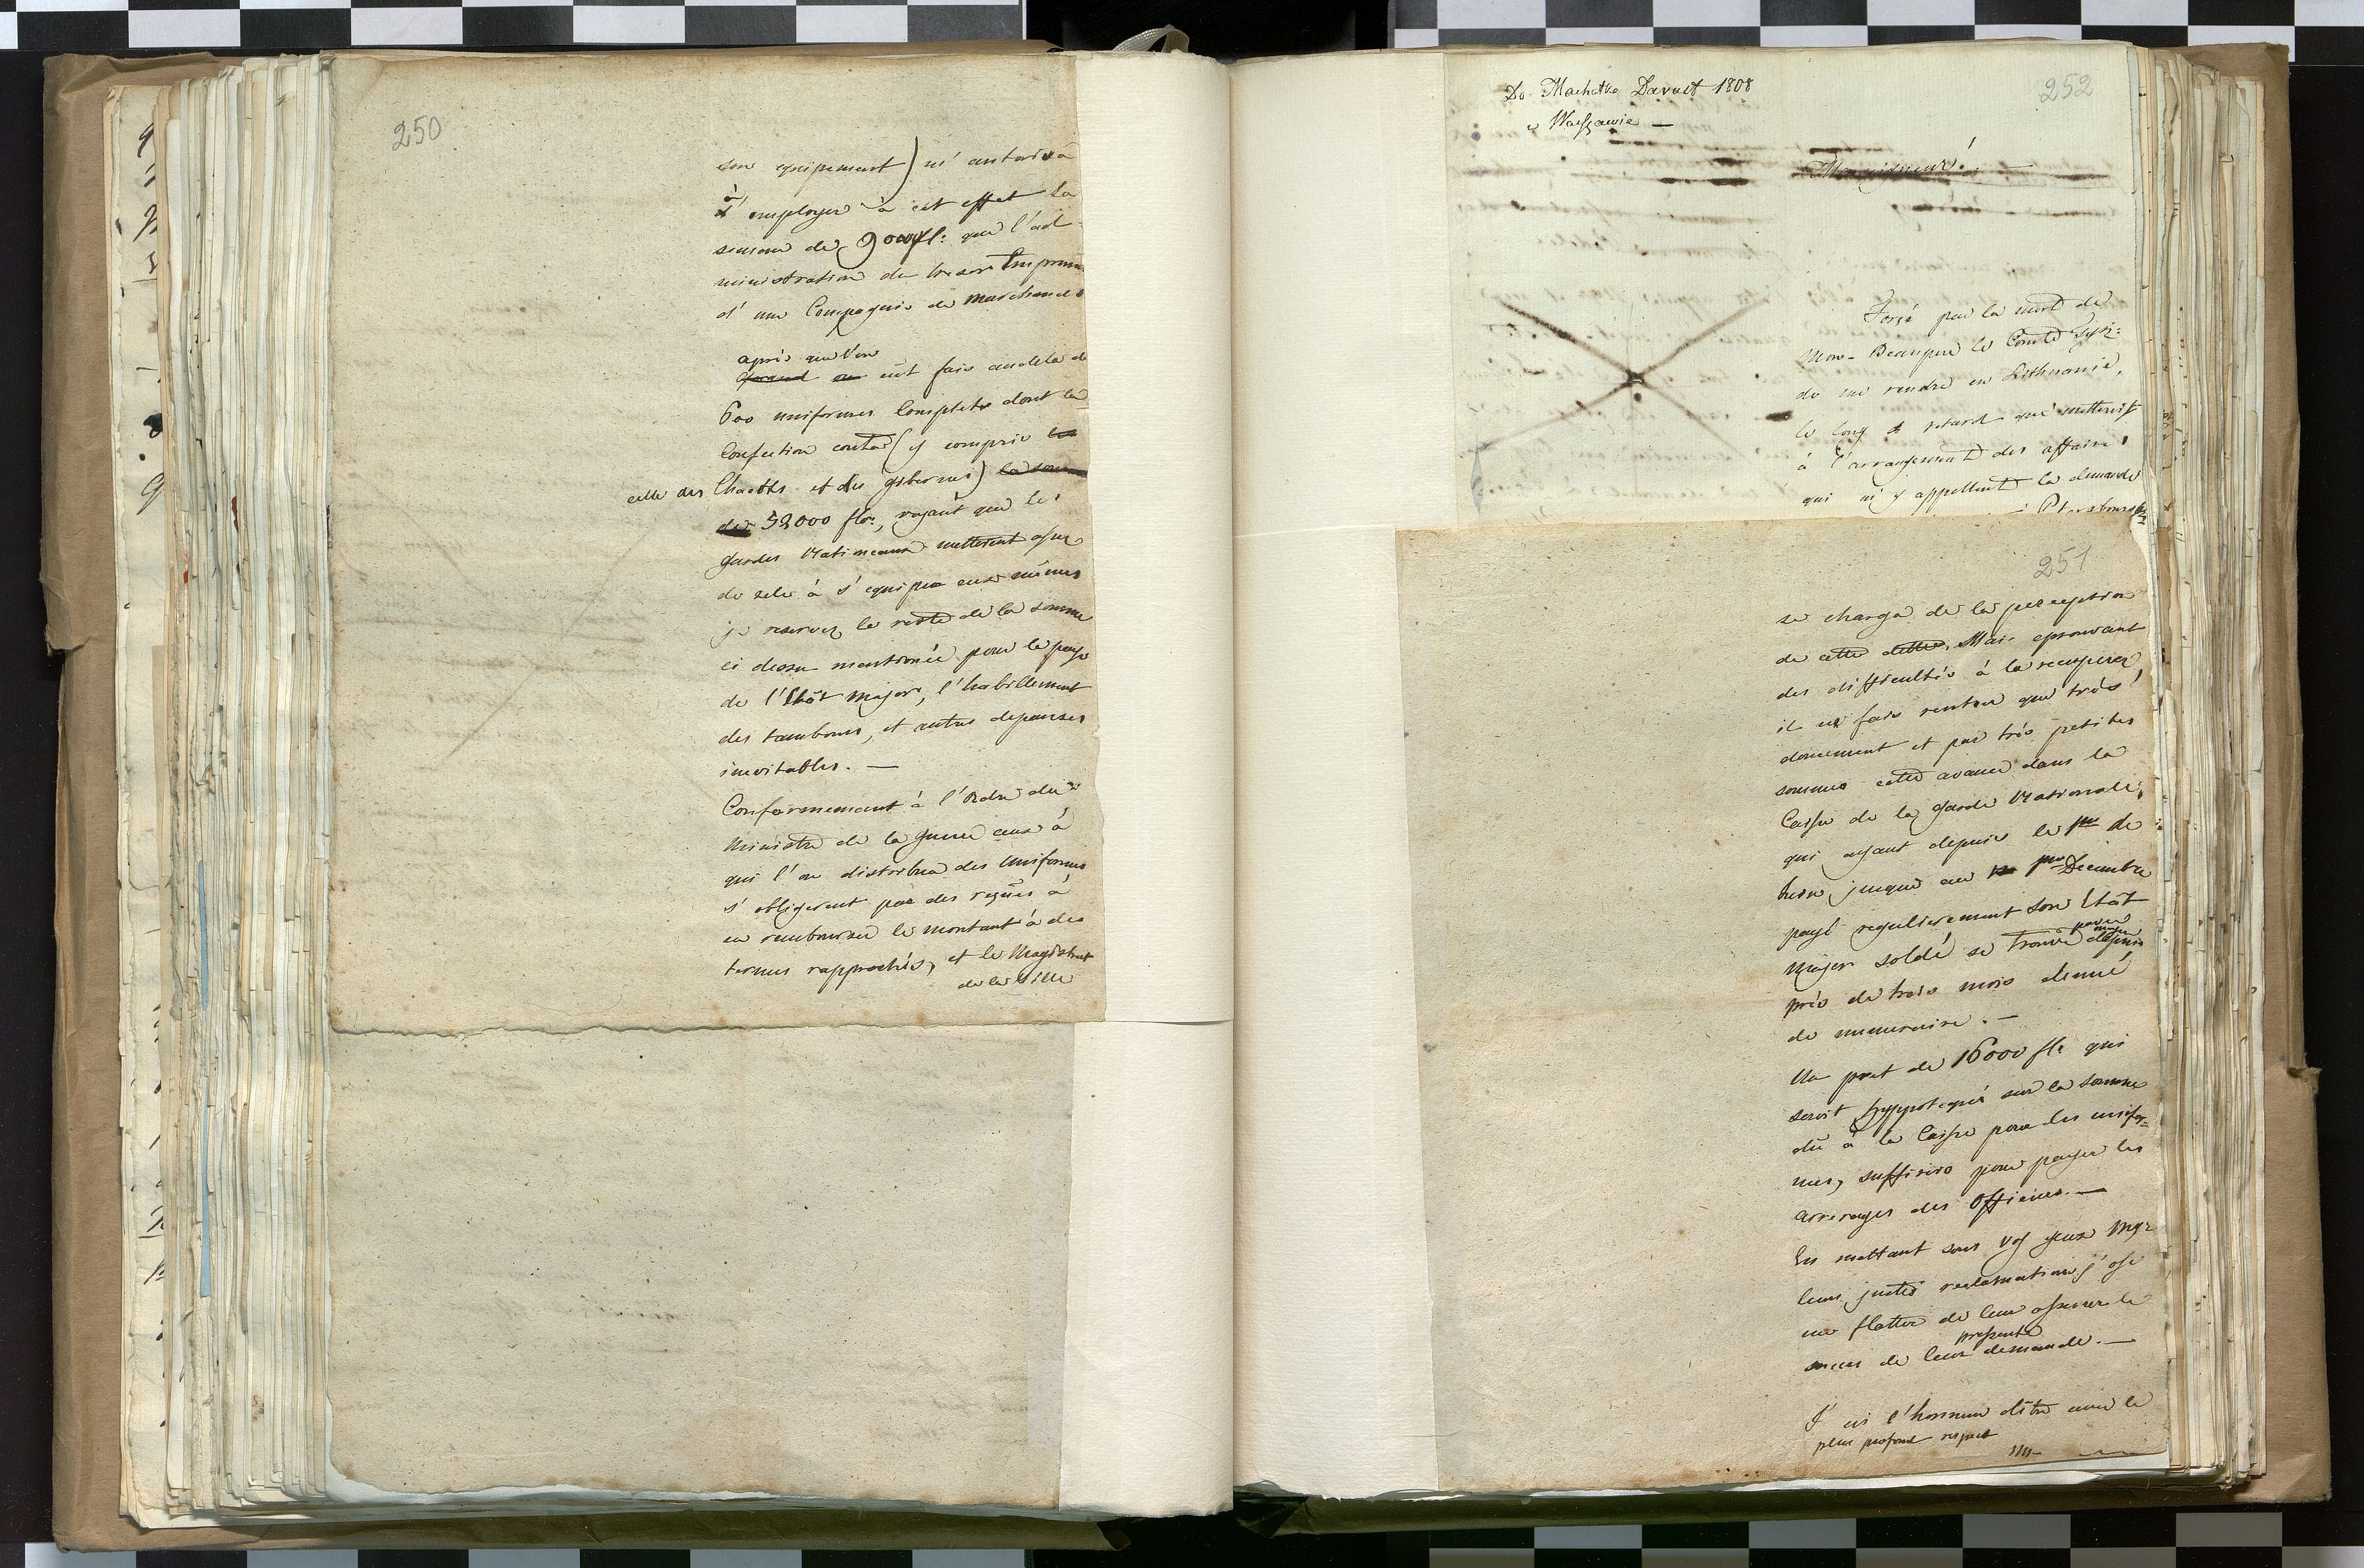 250
son equipement) m'autorisa
à employer à cet effet la
somme de 90000 fl: que l'ad-
ministration du tresor Emprunta
d'une Compagnie de marchands
après que l'on
quand on eût fais audela de
600 uniformes complets dont la
Confection couta (y compris les
celle des Chacots et des gibernes) la somme
de 52000 flor:, voyant que les
gardes Nationaux metterent assez
de zele à s'equiper eux mêmes
je reservez le reste de la somme
ci dessu mentionée pour la paye
de l'Etât Major, l'habillement
des tambours, et autres depenses
inevitables. —
Conformement à l'Ordre du
Ministre de la guerre ceux à
qui l'on distribua des Uniformes
s'obligerent par des reçues à
en rembourser le montant à des
termes rapprochés, et le Magistrat
de la Ville
252
Do Marszałka Davust 1808
w Warszawie —
Monseigneur!
Forçé par la mort de
Mon-Beaupere le Comte
de me rendre en Lithuanie,
le long retard que metteroit
à l'arrangement des affaires
qui m'y appellent la demande
Petersbourg
251
se charga de la perception
de cette dette. Mais eprouvant
des difficultés à la recuperer
il ne fais rentrer que très
doucement et par très petites
sommes cette avance dans la
Caisse de la garde Nationale,
qui ayant depuis le pre de
jusque au pre Decembre
payé regulierement son Etât
Major soldé se trouve depuis
près de trois mois denué
de numeraire. —
Un pret de 16000 fl: qui
seroit hyppotequé sur la somme
dû à la Caisse pour les unifor=
mes, suffiroit pour payer les
arrerages des Officiers. —
En mettant sous vos yeux Mgr
leur juste reclamation j'ose
me flatter de leur assurer le
presente
succes de leur demande. —
J'ai l'honneur d'être avec le
plus profond respect